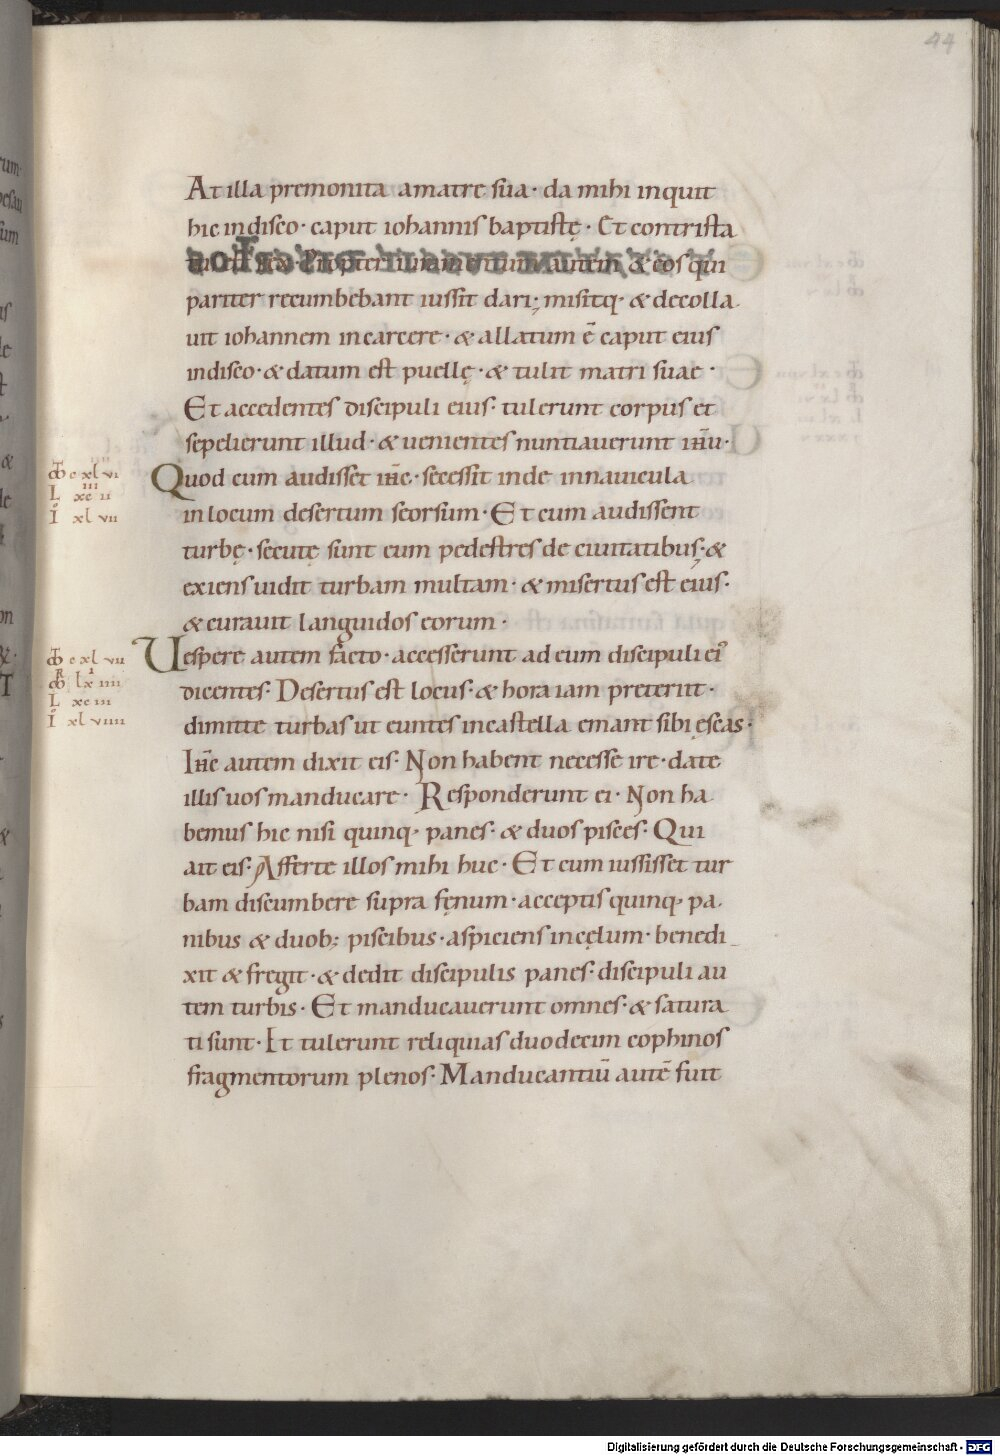 44
At illa premonita amatre sua· da mihi inquit
hic indisco· caput iohannis baptistę· Et contrista
tus est rex· Propter iuramentum autem & eos qui
pariter recumbebant iussit dari; misitq· & decolla
uit iohannem incarcere· & allatum ē caput eius
indisco· & datum est puellę· & tulit matri suae·
Et accedentes discipuli eius· tulerunt corpus et
sepelierunt illud· & uenientes nuntiauerunt ih̅u·
Quod cum audisset ih̅c· secessit inde innauicula
inlocum desertum seorsum· Et cum audissent
turbę· secutę sunt eum pedestres de ciuitatibus;· &
exiens uidit turbam multam· & misertus est eius·
& curauit languidos eorum·
Uespere autem facto· accesserunt ad eum discipuli ei᾽
dicentes· Desertus est locus· & hora iam preteriit·
dimitte turbas ut euntes incastella emant sibi ęscas·
Ih̅c autem dixit eis· Non habent necesse ire· date
illis uos manducare· Responderunt ei· Non ha
bemus hic nisi quinq· panes· & duos pisces· Qui
ait eis· Afferte illos mihi huc· Et cum iussisset tur
bam discumbere supra fęnum· acceptis quinq· pa
nibus & duob; piscibus· aspiciens incęlum· benedi
xit & fregit· & dedit discipulis panes· discipuli au
tem turbis· Et manducauerunt omnes· & satura
ti sunt· Et tulerunt reliquias duodecim cophinos
fragmentorum plenos· Manducantiū autē fuit
c xl vi
L xc ii
I xl vii
c xl vii
lx iiii
L xc iii
I xl viiii
Digitalisierung gefördert durch die Deutsche Forschungsgemeinschaft - DFG